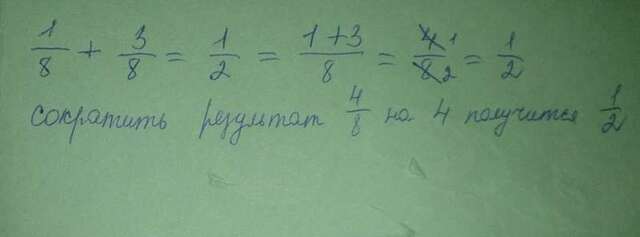 1/8 + 3/8 = 1/2 = 1+3/8 = 4 1/8 2 = 1/2
сократить результат 4/8 на 4 получится 1/2